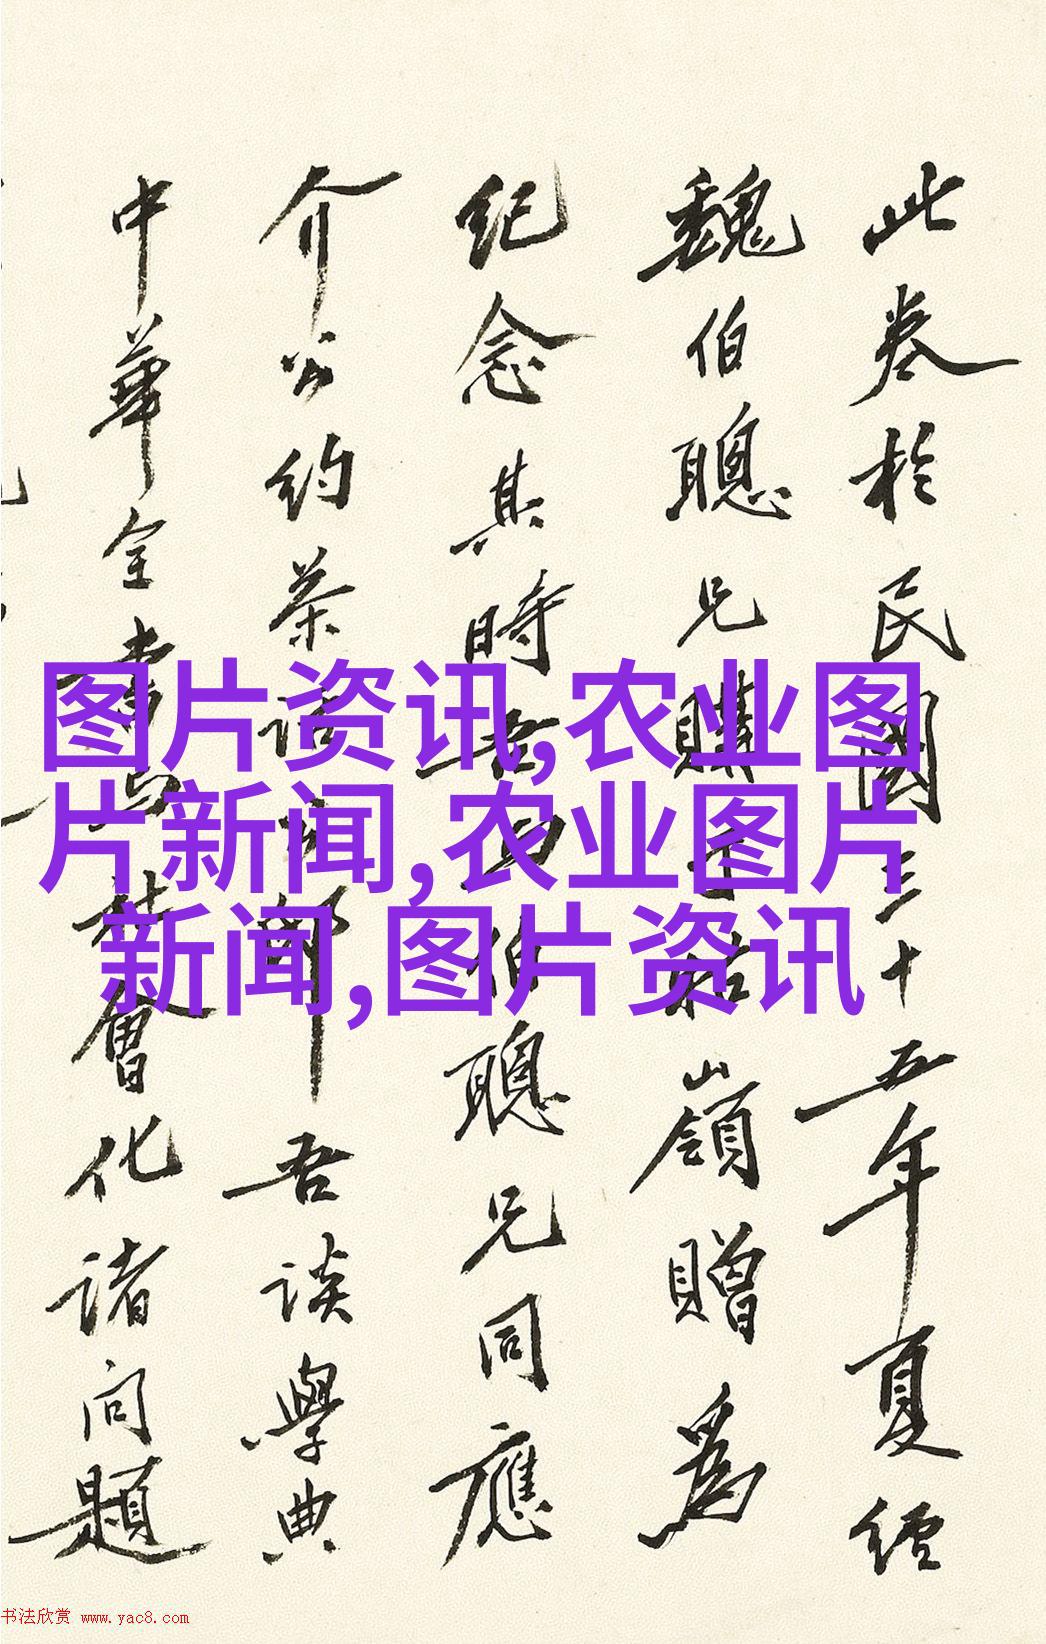 此卷於民國三十五年夏經
魏伯聰兄購牯嶺贈爲
紀念其時吾与伯聰兄同應
介公約茶話邸吾談學典
中華全書与會化諸问題
图片资讯,农业图
片新闻,农业图片
新闻,图片资讯
书法欣赏 www.yac8.com